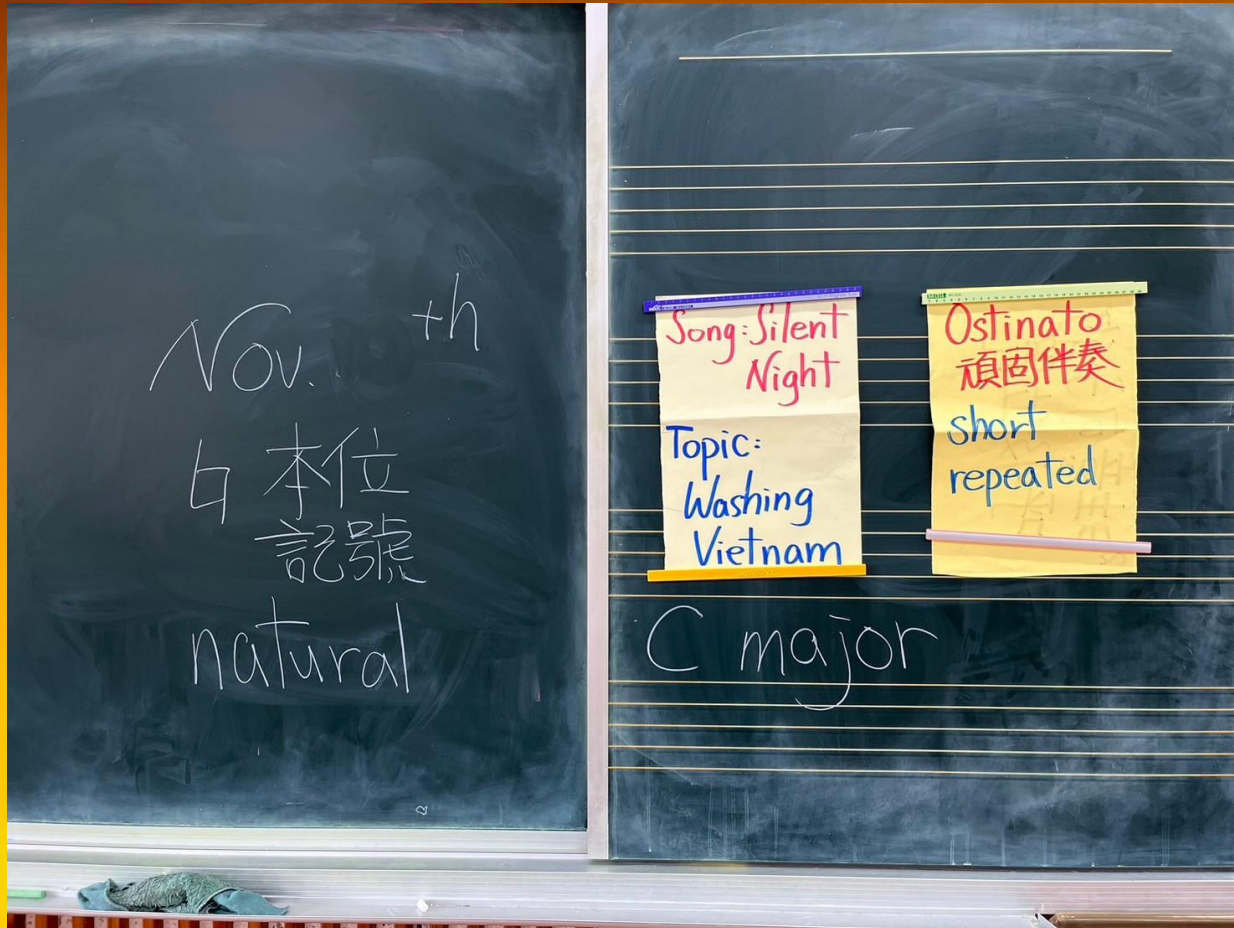 Nov. th
♮ 本位
記號
natural
Song: Silent
Night
Topic:
Washing
Vietnam
Ostinato
頑固伴奏
short
repeated
C major